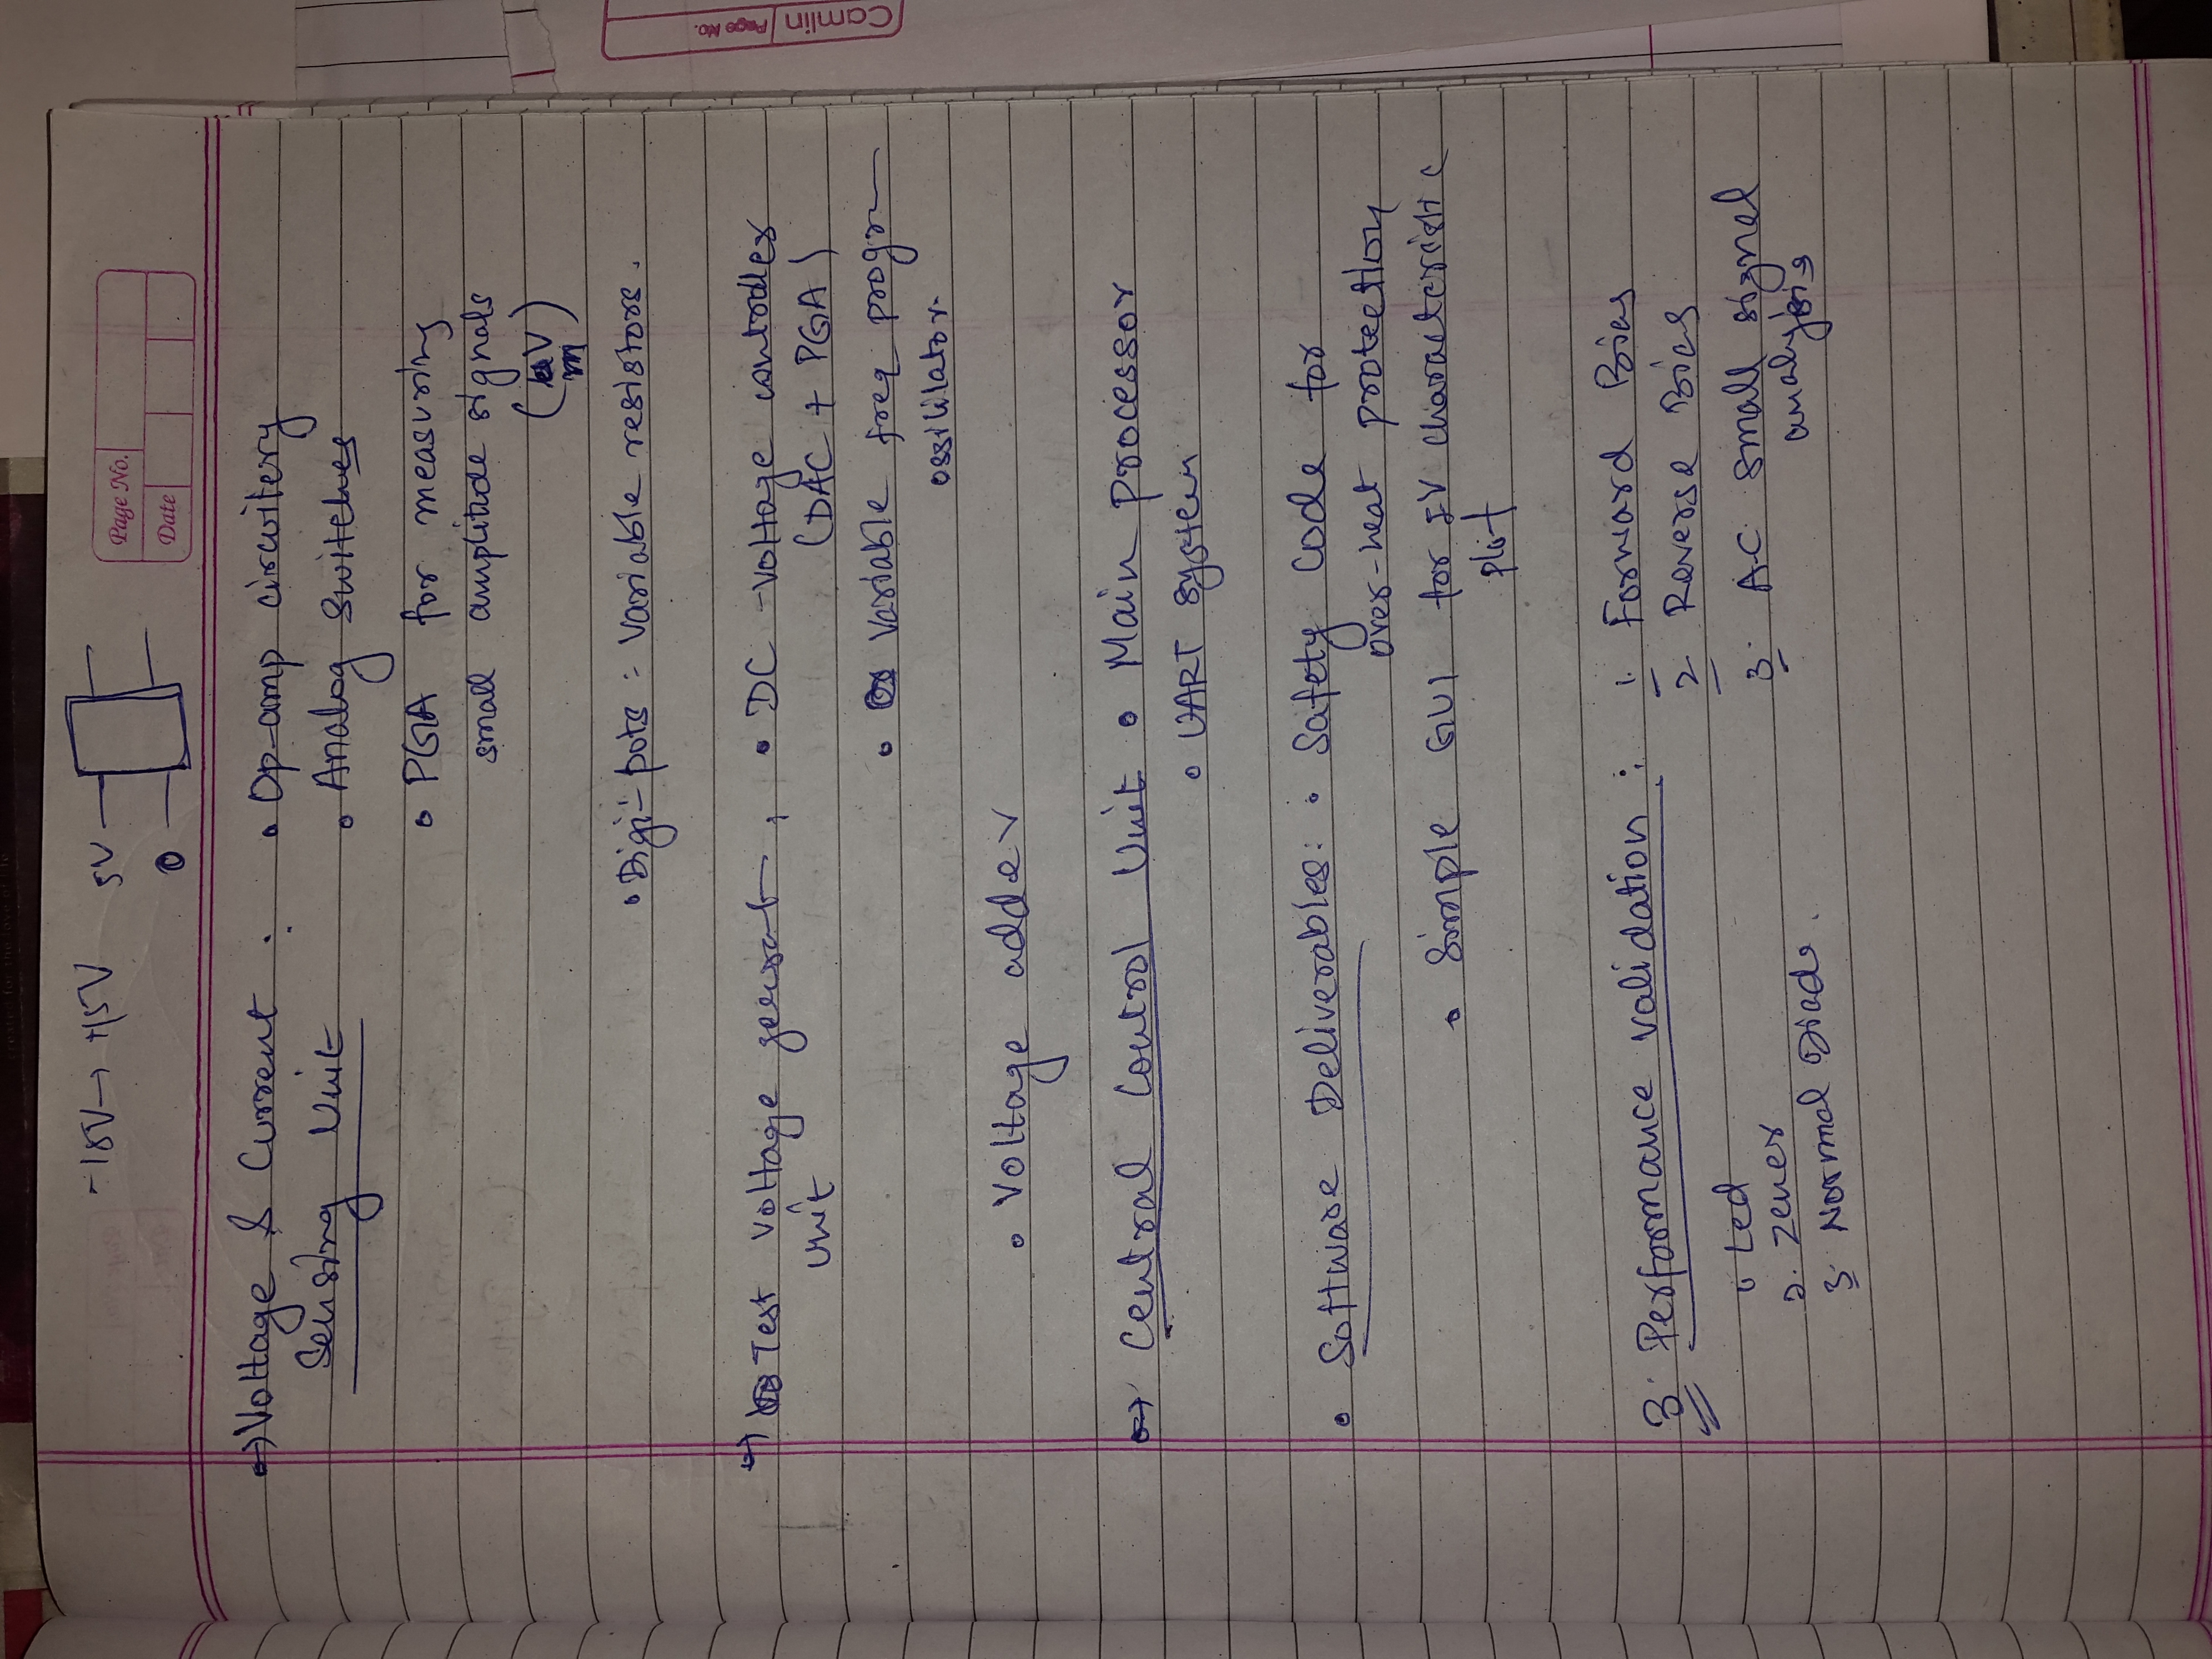 created for the love of life
-18V → +15V 5V
0
Page No.
Date
→ Voltage & Current : • Op-amp circuitery
Sensing Unit
• Analog Switches
• PGA for measuring
small amplitude signals
(uV)
m
• Digi-pots : Variable resistors.
→ Test Voltage generat , • DC -voltage controller
Unit (DAC + PGA)
• Variable freq progr
ossililator
• Voltage adder
→ Central Control Unit • Main processor
• UART system
• Software Deliverables: • Safety Code for
over-heat protection
• Simple GUI for IV characteristic
plot
3. Performance validation : 1. Forward Bias
2 Reverse Bias
1 Led
3. A.C. small signal
analysis
2. Zener
3. Normal Diode.
Camlin Page No.